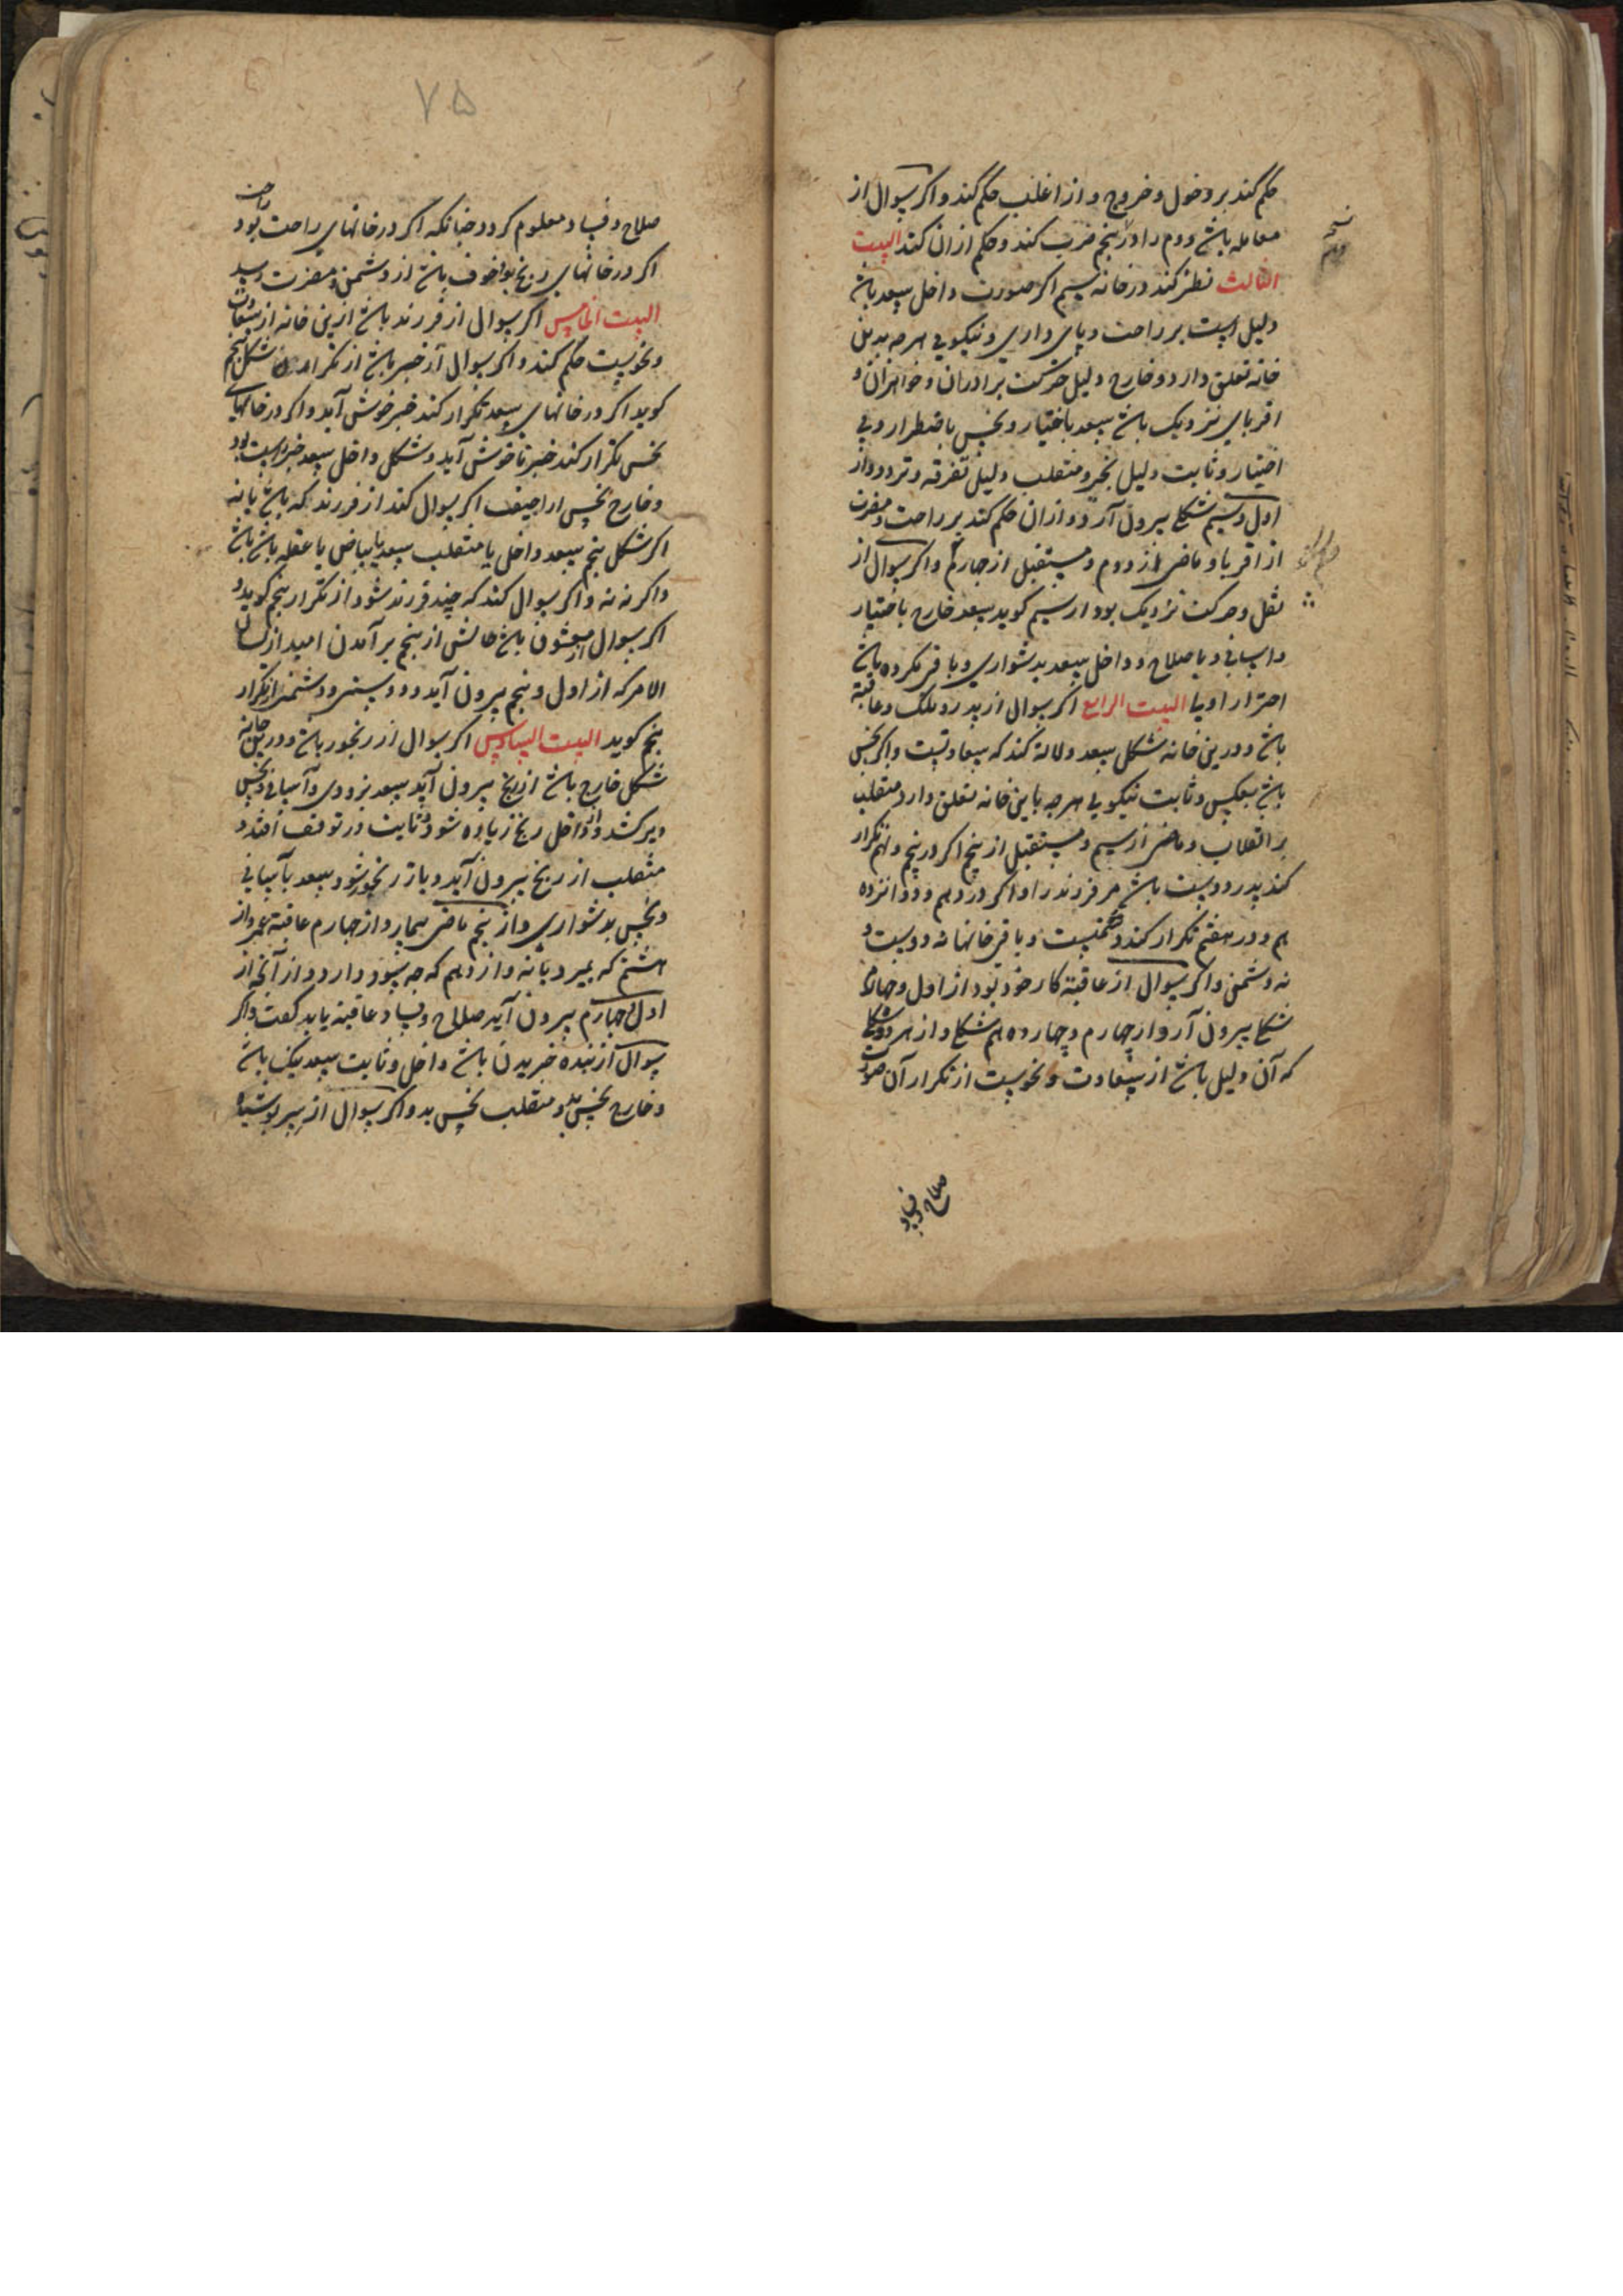 حکم کند بر دخول و خروج و از اغلب حکم کند و اکر سوال از
معامله باشد دوم را در پنجم ضرب کند و حکم از ان کند البیت
الثالث نظر کند در خانه سیم اکر صورت داخل سعد باشد
دلیل است بر راحت و پای داری و نیکویی هرچه بدین
خانه تعلق دارد و خارج دلیل حرکت برادران و خواهران و
اقربای نزدیک باشد سعد باختیار و نحس باضطرار و بی
اختیار و ثابت دلیل نجیر و منقلب دلیل تفرقه و تردد و از
اول و سیم شکلی بیرون آرد و ازان حکم کند بر راحت و مضرت
از اقربا و ماضی از دوم و مستقبل از چهارم و اکر سوال از
نقل و حرکت نزدیک بود از سیم کوید سعد خارج باختیار
و اسانی و با صلاح و داخل سعد بدشواری و باقی مکروه باشد
احتراز اولی البیت الرابع اکر سوال از پدر و ملک و عاقبة
باشد و درین خانه شکل سعد دلالة کند که سعادتست و اکر نحس
باشد بعکس و ثابت نیکویی هرچه باین خانه تعلق دارد و منقلب
بر انقلاب و ماضی از سیم و مستقبل از پنجم اکر در پنجم و نهم تکرار
کند پدر دوست باشد مر فرزند را و اکر در دهم و دوانزده
هم و در هفتم تکرار کند دشمنیست و باقی خانها نه دوست و
نه دشمن و اکر سوال از عاقبة کار خود بود از اول و چهارم
شکلی بیرون آرد و از چهارم و چهارده هم شکلی و از هر دو شکلی
که آن دلیل باشد از سعادت و نحوست از تکرار آن صورت
صلاح و فساد
۷۵
صلاح و فساد معلوم کردد چنانکه اکر در خانهای راحت بود راحت
اکر در خانهای رنج بود خوف باشد از دشمن و مضرت رسد
البیت الخامس اکر سوال از فرزند باشد ازین خانه از سعادت
و نحوست حکم کند و اکر سوال از خبر باشد از تکرار شکل پنجم
کوید اکر در خانهای سعد تکرار کند خبر خوش آید و اکر در خانهای
نحس تکرار کند خبر ناخوش آید و شکل داخل سعد خبر راست بود
و خارج نحس اراجیف اکر سوال کند از فرزند که باشد یا نه
اکر شکل پنجم سعد داخل یا منقلب سعد یا بیاض یا عقله باشد باشد
و اکر نه نه و اکر سوال کند که چند فرزند شود از تکرار پنجم کوید و
اکر سوال از معشوق باشد حالش از پنجم بر آمدن امید از لسان
الامر که از اول و پنجم بیرون آید و دوستی و دشمنی از تکرار
پنجم کوید البیت السادس اکر سوال از رنجور باشد و درین خانه
شکل خارج باشد از رنج بیرون آید سعد بزودی و آسانی و نحس
دیر کشد و از داخل رنج زیاده شود و ثابت در توقف افتد و
منقلب از رنج بیرون آید و باز رنجور شود سعد بآسانی
و نحس بدشواری و از پنجم ماضی بیمار و از چهارم عاقبة عمر و از
هشتم که بمیرد یا نه و از دهم که چه سود دارد و از آنچه از
اول و چهارم بیرون آید صلاح و فساد عاقبة باید کفت و اکر
سوال از بنده خریدن باشد داخل و ثابت سعد نیک باشد
و خارج نحس بد و منقلب نحس بد و اکر سوال از سر پوشیده